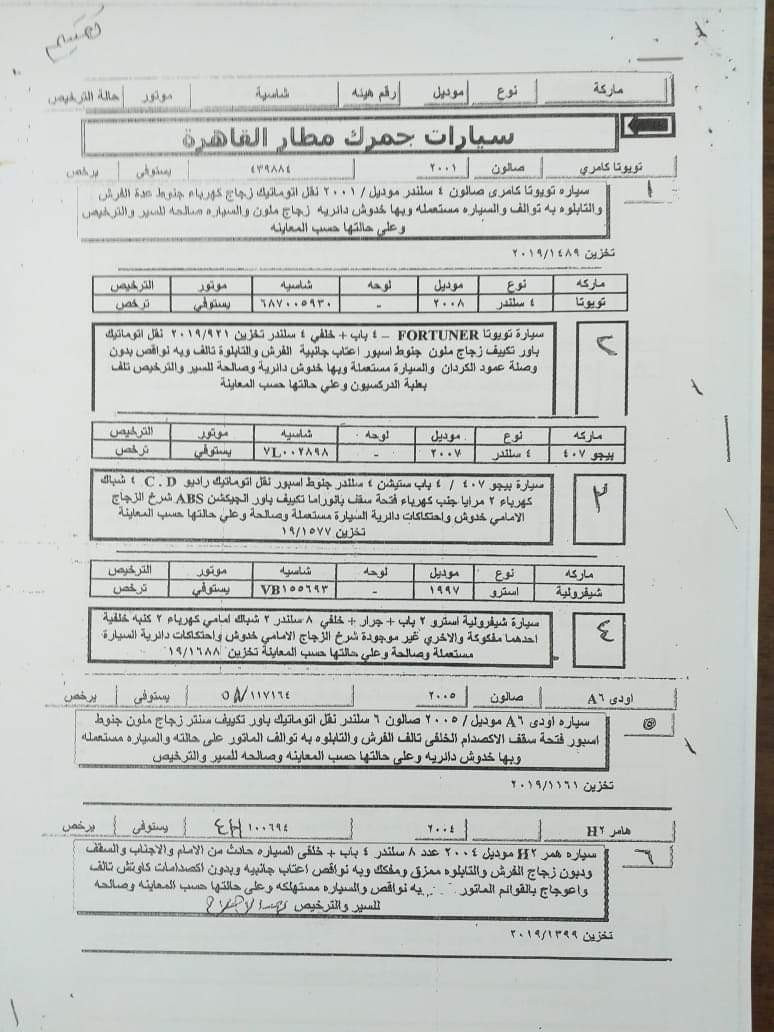 ماركة نوع موديل رقم هيئه شاسية موتور حالة الترخيص
سيارات جمرك مطار القاهرة
تويوتا كامري صالون ٢٠٠١ ٤٣٩٨٨٤ يستوفي يرخص
١
سياره تويوتا كامرى صالون ٤ سلندر موديل / ٢٠٠١ نقل اتوماتيك زجاج كهرباء جنوط عدة الفرش
والتابلوه به توالف والسياره مستعمله وبها خدوش دائريه زجاج ملون والسياره صالحه للسير والترخيص
وعلي حالتها حسب المعاينه
تخزين ٢٠١٩/١٤٨٩
ماركه نوع موديل لوحه شاسية موتور الترخيص
تويوتا ٤ سلندر ٢٠٠٨ - ٦٨٧٠٠٥٩٣٠ يستوفي ترخص
٢
سيارة تويوتا FORTUNER – ٤ باب + خلفي ٤ سلندر تخزين ٢٠١٩/٩٢١ نقل اتوماتيك
باور تكييف زجاج ملون جنوط اسبور اعتاب جانبية الفرش والتابلوة تالف وبه نواقص بدون
وصلة عمود الكردان والسيارة مستعملة وبها خدوش دائرية وصالحة للسير والترخيص تلف
بعلبة الدركسيون وعلي حالتها حسب المعاينة
ماركه نوع موديل لوحه شاسيه موتور الترخيص
بيجو ٤٠٧ ٤ سلندر ٢٠٠٧ - VL٠٠٢٨٩٨ يستوفي ترخص
٣
سيارة بيجو ٤٠٧ / ٤ باب ستيشن ٤ سلندر جنوط اسبور نقل اتوماتيك راديو C.D ٤ شباك
كهرباء ٢ مرايا جنب كهرباء فتحة سقف بانوراما تكييف باور الجيكشن ABS شرخ الزجاج
الامامي خدوش واحتكاكات دائرية السيارة مستعملة وصالحة وعلي حالتها حسب المعاينة
تخزين ١٩/١٥٧٧
ماركه نوع موديل لوحه شاسيه موتور الترخيص
شيفرولية استرو ١٩٩٧ - VB١٥٥٦٩٣ يستوفي ترخص
٤
سيارة شيفرولية استرو ٢ باب + جرار + خلفي ٨ سلندر ٢ شباك امامي كهرباء ٢ كنبه خلفية
احدهما مفكوكة والاخري غير موجودة شرخ الزجاج الامامي خدوش واحتكاكات دائرية السيارة
مستعملة وصالحة وعلي حالتها حسب المعاينة تخزين ١٩/١٦٨٨
اودى A٦ صالون ٢٠٠٥ ٥N/١١٧١٦٤ يستوفى يرخص
٥
سياره اودى A٦ موديل / ٢٠٠٥ صالون ٦ سلندر نقل اتوماتيك باور تكييف سنتر زجاج ملون جنوط
اسبور فتحة سقف الاكصدام الخلفى تالف الفرش والتابلوه به توالف الماتور على حالته والسياره مستعمله
وبها خدوش دائريه وعلى حالتها حسب المعاينه وصالحه للسير والترخيص
تخزين ٢٠١٩/١١٦١
هامر H٢ ٢٠٠٤ ٤H ١٠٠٦٩٤ يستوفى يرخص
٦
سياره همر H٢ موديل ٢٠٠٤ عدد ٨ سلندر ٤ باب + خلفى السياره حادث من الامام والاجناب والسقف
وبدون زجاج الفرش والتابلوه ممزق ومفكك وبه نواقص اعتاب جانبيه وبدون اكصدامات كاوتش تالف
واعوجاج بالقوائم الماتور به نواقص والسياره مستهلكه وعلى حالتها حسب المعاينه وصالحه
للسير والترخيص بعد الاصلاح
تخزين ٢٠١٩/١٣٩٩